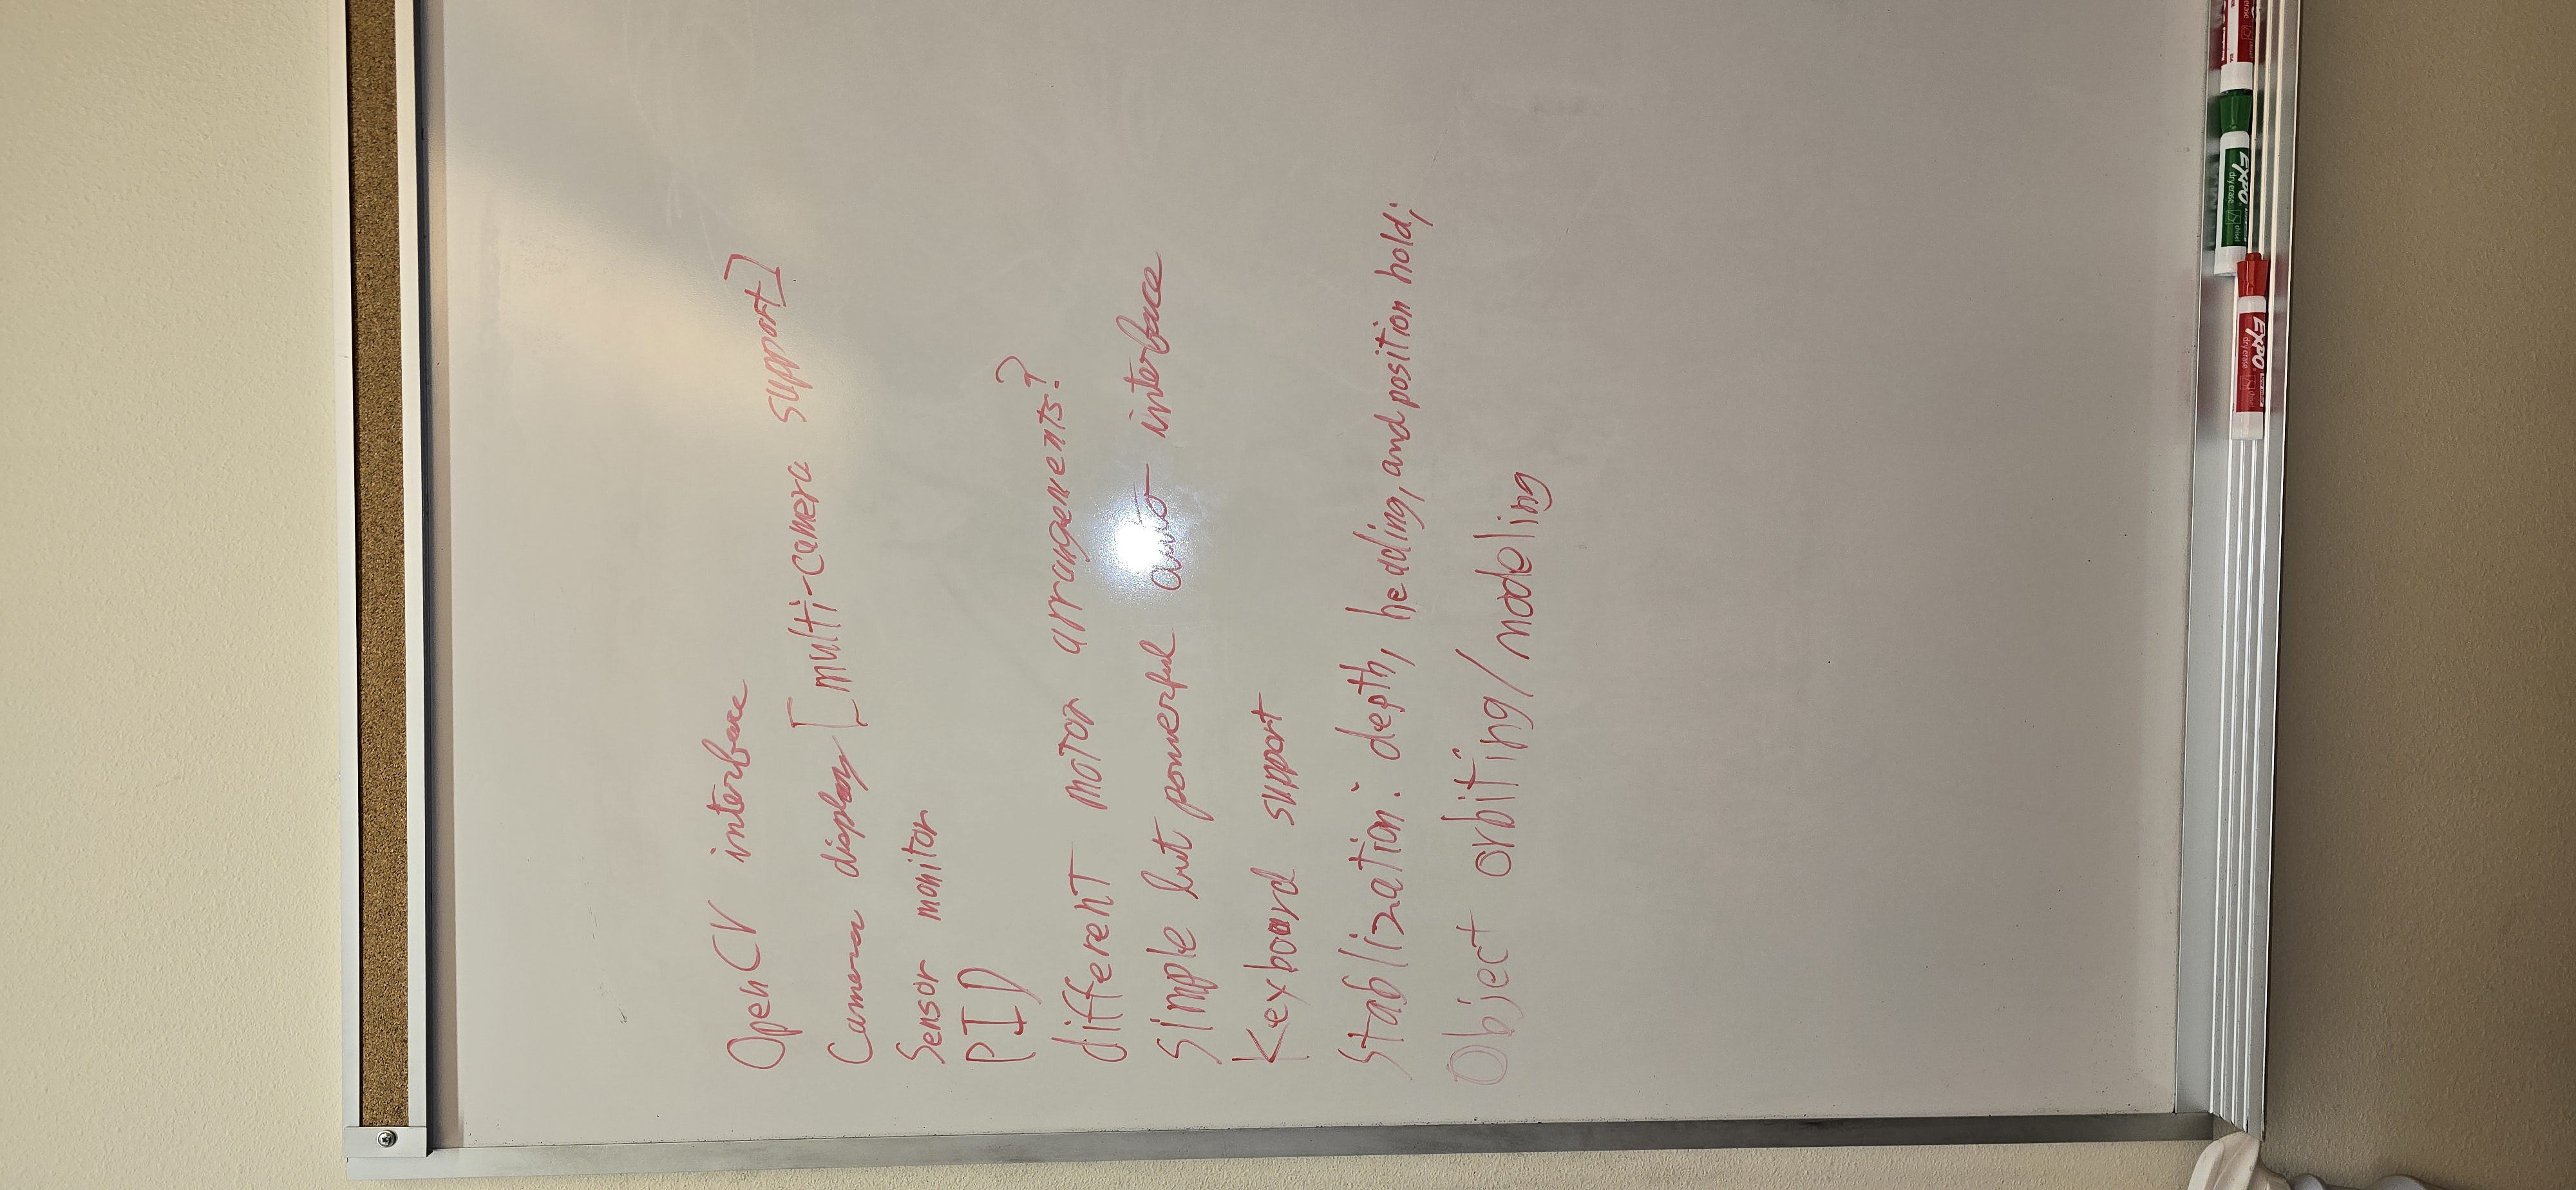 OpenCV interface
Camera display [multi-camera support]
Sensor monitor
PID
different motor arrangements?
simple but powerful auto interface
Keyboard support
Stablization: depth, heading, and position hold;
Object orbiting/modeling
EXPO dry erase
EXPO dry erase
dry erase